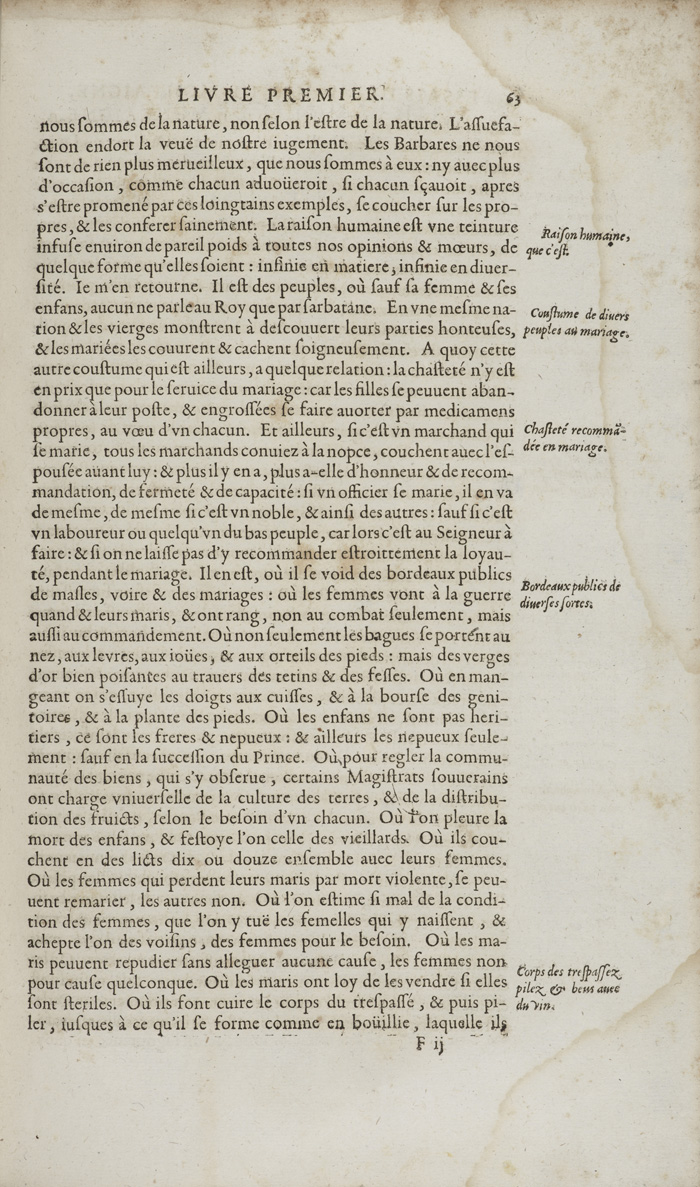 LIVRE PREMIER. 63
nous sommes de la nature, non selon l'estre de la nature. L'assuefa-
ction endort la veuë de nostre iugement. Les Barbares ne nous
sont de rien plus merueilleux, que nous sommes à eux : ny auec plus
d'occasion, comme chacun aduoüeroit, si chacun sçauoit, apres
s'estre promené par ces loingtains exemples, se coucher sur les pro-
pres, & les conferer sainement. La raison humaine est vne teinture
infuse enuiron de pareil poids à toutes nos opinions & mœurs, de
Raison humaine,
que c'est.
quelque forme qu'elles soient : infinie en matiere, infinie en diuer-
sité. Ie m'en retourne. Il est des peuples, où sauf sa femme & ses
enfans, aucun ne parle au Roy que par sarbatane. En vne mesme na-
tion & les vierges monstrent à descouuert leurs parties honteuses,
Coustume de diuers
peuples au mariage.
& les mariées les couurent & cachent soigneusement. A quoy cette
autre coustume qui est ailleurs, a quelque relation : la chasteté n'y est
en prix que pour le seruice du mariage : car les filles se peuuent aban-
donner à leur poste, & engrossées se faire auorter par medicamens
propres, au vœu d'vn chacun. Et ailleurs, si c'est vn marchand qui
se marie, tous les marchands conuiez à la nopce, couchent auec l'es-
Chasteté recommã-
dée en mariage.
pousée auant luy : & plus il y en a, plus a-elle d'honneur & de recom-
mandation, de fermeté & de capacité : si vn officier se marie, il en va
de mesme, de mesme si c'est vn noble, & ainsi des autres : sauf si c'est
vn laboureur ou quelqu'vn du bas peuple, car lors c'est au Seigneur à
faire : & si on ne laisse pas d'y recommander estroittement la loyau-
té, pendant le mariage. Il en est, où il se void des bordeaux publics
de masles, voire & des mariages : où les femmes vont à la guerre
Bordeaux publics de
diuerses sortes.
quand & leurs maris, & ont rang, non au combat seulement, mais
aussi au commandement. Où non seulement les bagues se portent au
nez, aux levres, aux ioües, & aux orteils des pieds : mais des verges
d'or bien poisantes au trauers des tetins & des fesses. Où en man-
geant on s'essuye les doigts aux cuisses, & à la bourse des geni-
toires, & à la plante des pieds. Où les enfans ne sont pas heri-
tiers, ce sont les freres & nepueux : & ailleurs les nepueux seule-
ment : sauf en la succession du Prince. Où pour regler la commu-
nauté des biens, qui s'y obserue, certains Magistrats souuerains
ont charge vniuerselle de la culture des terres, & de la distribu-
tion des fruicts, selon le besoin d'vn chacun. Où l'on pleure la
mort des enfans, & festoye l'on celle des vieillards. Où ils cou-
chent en des licts dix ou douze ensemble auec leurs femmes.
Où les femmes qui perdent leurs maris par mort violente, se peu-
uent remarier, les autres non. Où l'on estime si mal de la condi-
tion des femmes, que l'on y tuë les femelles qui y naissent, &
achepte l'on des voisins, des femmes pour le besoin. Où les ma-
ris peuuent repudier sans alleguer aucune cause, les femmes non
pour cause quelconque. Où les maris ont loy de les vendre si elles
sont steriles. Où ils font cuire le corps du trespassé, & puis pi-
Corps des trespassez
pilez & beus auec
du vin.
ler, iusques à ce qu'il se forme comme en boüillie, laquelle ils
F ij